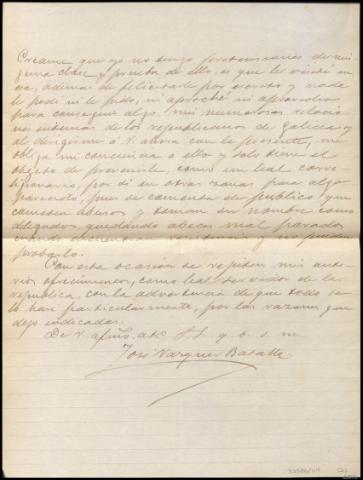 Creame que yo no tengo pretensiones de nin-
guna clase y prueba de ello, es que le visité en
esa, además de felicitarle por escrito y nada
le pedí ni le pido, ni aproveché ni aprovecharé
para conseguir algo, mis numerosas relacio
nes intimas de los republicanos de Galicia y
al dirigirme á V. ahora con la presente, me
obliga mi conciencia á ello y solo tiene el
objeto de prevenirle, como un leal corre-
ligionario, por si en otras zonas pasa algo
parecido, pues se comenta de publico que
cometen abusos y toman su nombre como
delegados, quedando á veces mal parados
cuando encuentran resistencia y no pueden
probarlo.
Con esta ocasión se repiten mis ante-
riores ofrecimientos, como leal servidor de la
republica, con la advertencia de que todo se
lo hará particularmente, por las razones que
dejo indicadas.
De V. afmo. atto. S. S. q. b. s. m
José Vazquez Batalla